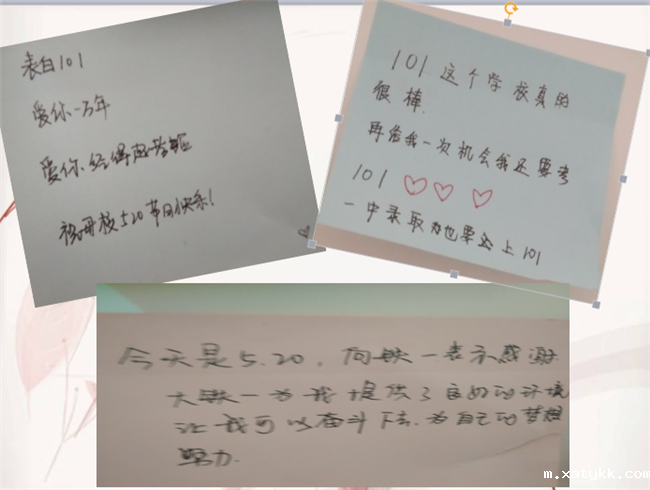 表白101
爱你一万年
爱你经得起考验
祝母校520节日快乐!
101这个学校真的
很棒
再给我一次机会我还要考
101
一中录取我也要上101
今天是5.20,向铁一表示感谢
大铁一为我提供了良好的环境
让我可以奋斗下去,为自己的梦想
努力.
m.xatykk.com